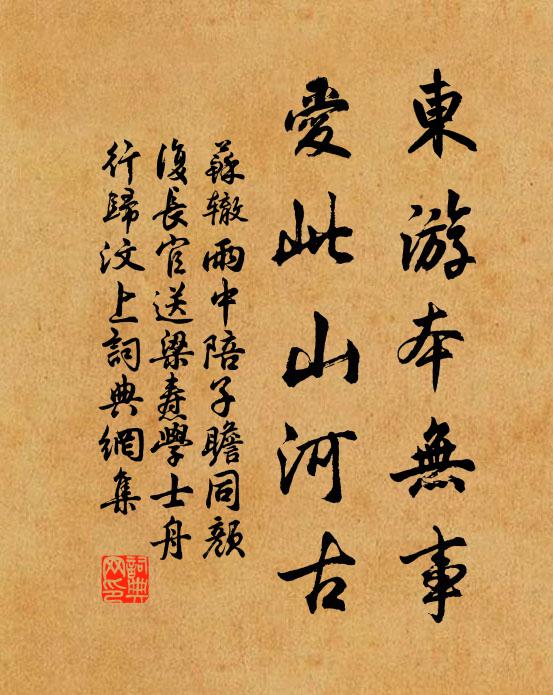 東游本無事
愛此山河古
蘇辙雨中陪子瞻同顏
復長官送梁燾學士舟
行歸汶上詞典網集
詞典网印